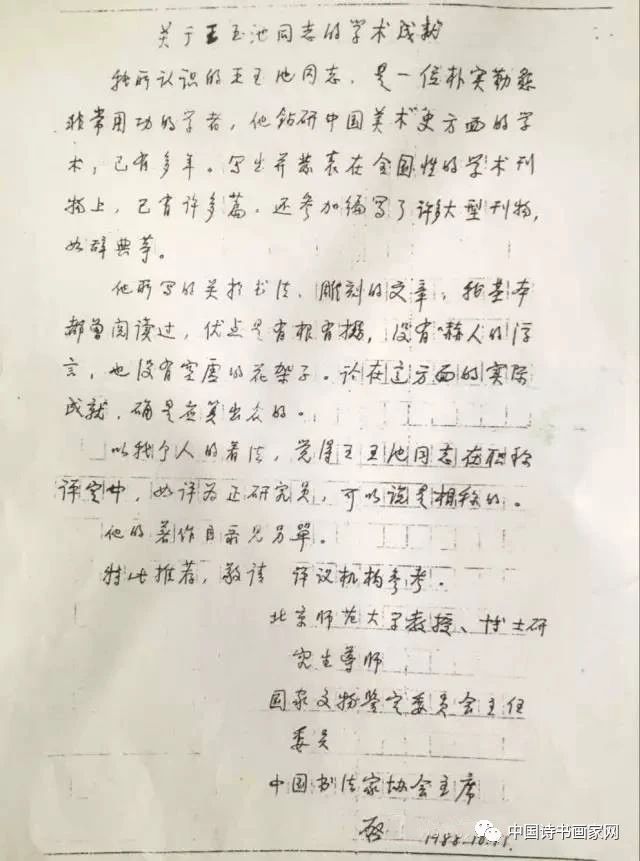 关于王玉池同志的学术成就
我所认识的王玉池同志，是一位朴实勤恳
非常用功的学者，他钻研中国美术史方面的学
术，已有多年。写出并发表在全国性的学术刊
物上，已有许多篇，还参加编写了许多大型刊物，
如辞典等。
他所写的关于书法、雕刻的文章，我基本
都曾阅读过，优点是有根有据，没有吓人的浮
言，也没有空虚的花架子。论在这方面的实际
成就，确是应算出众的。
以我个人的看法，觉得王玉池同志在职称
评定中，如评为正研究员，可以说是相称的。
他的著作目录见另单。
特此推荐，敬请 评议机构参考。
北京师范大学教授、博士研
究生导师
国家文物鉴定委员会主任
委员
中国书法家协会主席
启 1988.10.
中国诗书画家网